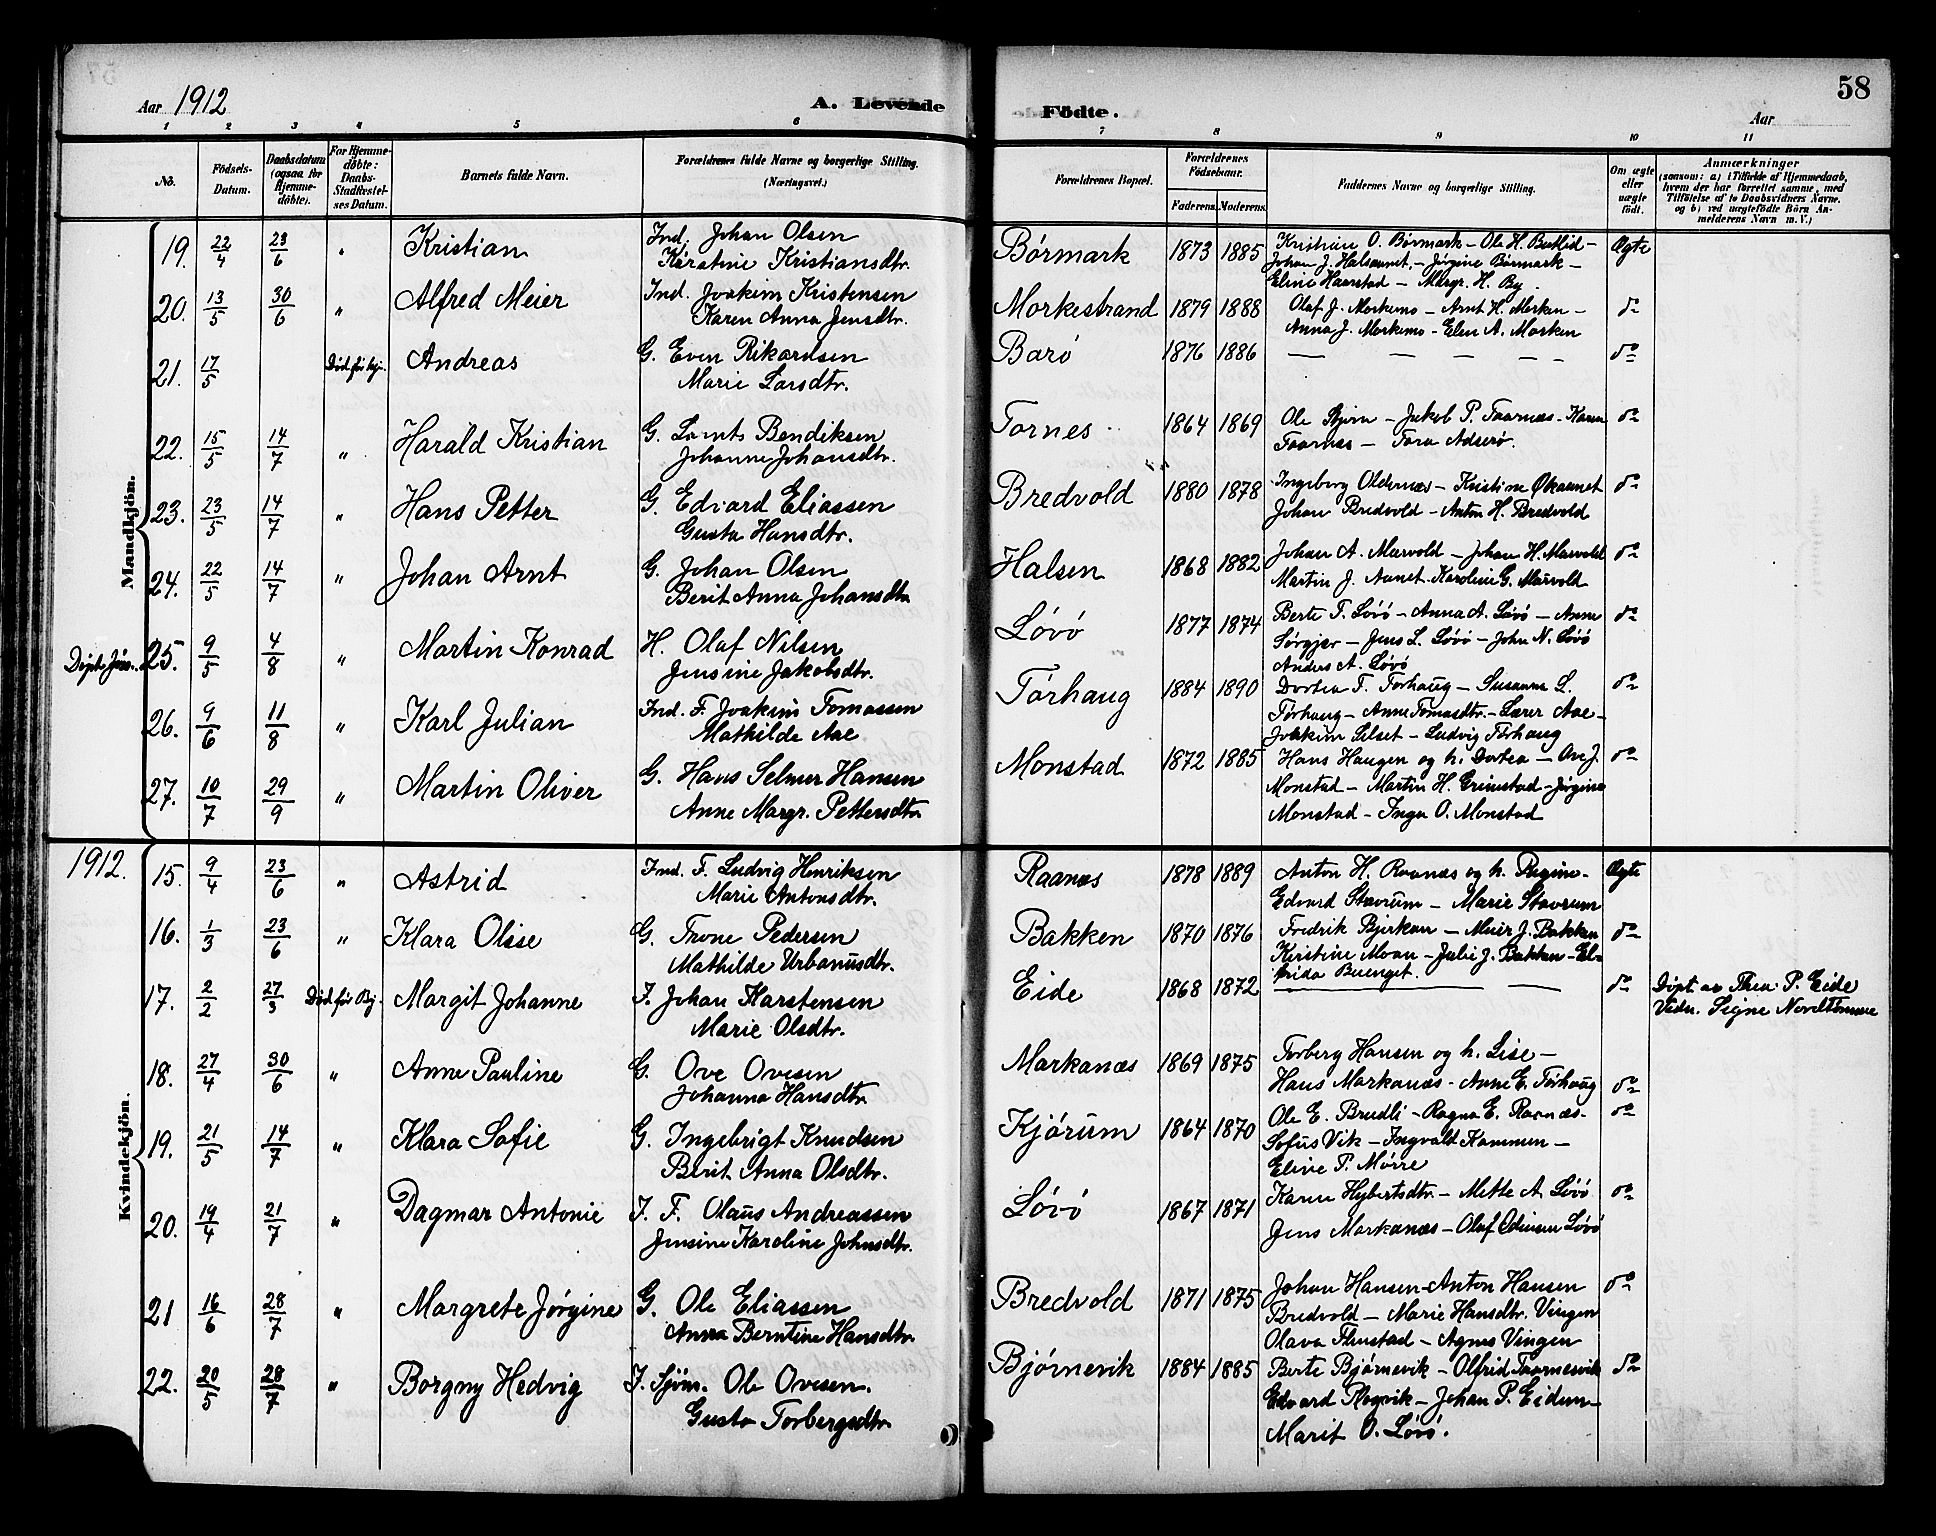 58
Aar 1912
A. Levende
Födte.
Aar
1 2 3 4 5 6 7 8 9 10 11
No.
Födsels-
Datum.
Daabsdatum
(ogsaa for
Hjemme-
döbte).
For Hjemme-
döbte:
Daabs-
Stadfæstel-
ses Datum.
Barnets fulde Navn.
Forældrenes fulde Navne og borgerlige Stilling.
(Næringsvei.)
Forældrenes Bopæl.
Forældrenes
Födselsaar.
Faderens. Moderens.
Faddernes Navne og borgerlige Stilling.
Om ægte
eller
uægte
födt.
Anmærkninger
(saasom: a) i Tilfælde af Hjemmedaab,
hvem der har forrettet samme, med
Tilföielse af to Daabsvidners Navne.
og b) ved uægtefödte Börn An-
melderens Navn m. V.)
Mandkjön.
19. 22/4 23/6 " Kristian Ind. Johan Olsen Børmark 1873 1885 Kristian O. Børmark - Ole H. Butlid - Ægte
Karstine Kristiansdtr. Johan J. Halsaunet. - Jørgine Børmark -
Eline Haarstad - Margr. H. By.
20. 13/5 30/6 " Alfred Meier Ind. Joakim Kristensen Morkestrand 1879 1888 Olaf J. Morkemo - Arnt H. Morken - do
Karen Anna Jensdtr. Anna J. Morkemo - Elen A. Morken
21. 17/5 Død før hj. Andreas G. Even Rikardsen Barø 1876 1886 — — — — — do
Marie Larsdtr.
22. 15/5 14/7 " Harald Kristian G. Lornts Bendiksen Tornes 1864 1869 Ole Bjørn - Jakob P. Taarnæs - Karen do
Johanne Johansdtr. Taarnæs - Tora Adserø.
23. 23/5 14/7 " Hans Petter G. Edvard Eliassen Bredvold 1880 1878 Ingeborg Oldernæs - Kristine Økaunet do
Gusta Hansdtr. Johan Bredvold - Anton H. Bredvold
24. 22/5 14/7 " Johan Arnt G. Johan Olsen Halsen 1868 1882 Johan A. Mærvold - Johan H. Mærvold do
Berit Anna Johansdtr Martin J. Aunet - Karoline G. Mærvold
Døpt i 25. 9/5 4/8 " Martin Konrad H. Olaf Nilsen Løvø 1877 1874 Berte T. Løvø - Anna A. Løvø - Anne do
Jensine Jakobsdtr. Sørgjer - Jens L. Løvø - John N. Løvø
Anders A. Løvø
26. 9/6 11/8 " Karl Julian Ind. F. Joakim Tomassen Tørhaug 1884 1890 Dortea T. Tørhaug - Susanna L. do
Mathilde Aae Tørhaug - Anne Tomasdtr. - Lærer Aae -
Joakim Selset - Ludvig Tørhaug
27. 10/7 29/9 " Martin Oliver G. Hans Selmer Hansen Monstad 1872 1885 Hans Haugen og h. Dortea - Ove J. do
Anne Margr. Pettersdtr Monstad - Martin H. Grimstad - Jørgine
Monstad - Inga O. Monstad
1912.
Kvindekjön.
15. 9/4 23/6 " Astrid Ind. F. Ludvig Henriksen Raanæs 1878 1889 Anton H. Raanæs og h. Regine - Ægte
Marie Antonsdtr. Edvard Stavrum - Marie Stavrum
16. 1/3 23/6 " Klara Olise G. Trone Pedersen Bakken 1870 1876 Fredrik Bjirkan - Meier J. Bakken do
Mathilde Urbanusdtr. Kirstine Moan - Julie J. Bakken - El-
frida Buenget.
17. 2/2 27/3 Død før Bj. Margit Johanne I. Johan Karstensen Eide 1868 1872 — — do Døpt av Thea P. Eide
Marie Olsdtr. Vidn. Signe
18. 27/4 30/6 " Anne Pauline G. Ove Ovesen Markanæs 1869 1875 Torberg Hansen og h. Lise -
Johanna Hansdtr. Hans Markanæs - Anne E. Tørhaug do
19. 21/5 14/7 " Klara Sofie G. Ingebrigt Knudsen Kjørum 1864 1870 Ole E. Brudli - Ragna E. Raanæs - do
Berit Anna Olsdtr. Sofus Vik - Ingvald Kammen -
Eline P. Mørre
20. 19/4 21/7 " Dagmar Antonie I. F. Olaus Andreassen Løvø 1867 1871 Karen Hybertsdtr. - Mette A. Løvø do
Jensine Karoline Johnsdtr. Jens Markanæs - Olaf Edinsen Løvø
21 16/6 28/7 " Margrete Jørgine G. Ole Eliassen Bredvold 1871 1875 Johan Hansen - Anton Hansen do
Anna Berntine Hansdtr Bredvold - Marie Hansdtr. Vingen
Olava Flenstad - Agnes Vingen
22. 20/5 28/7 " Borgny Hedvig I. Sjøm. Ole Ovesen. Bjørnevik 1884 1885 Berte Bjørnevik - Olfrid Taarnesvik do
Gusta Torbergsdtr. Edvard Røgvik - Johan P. Eidem -
Marit O. Løvø.